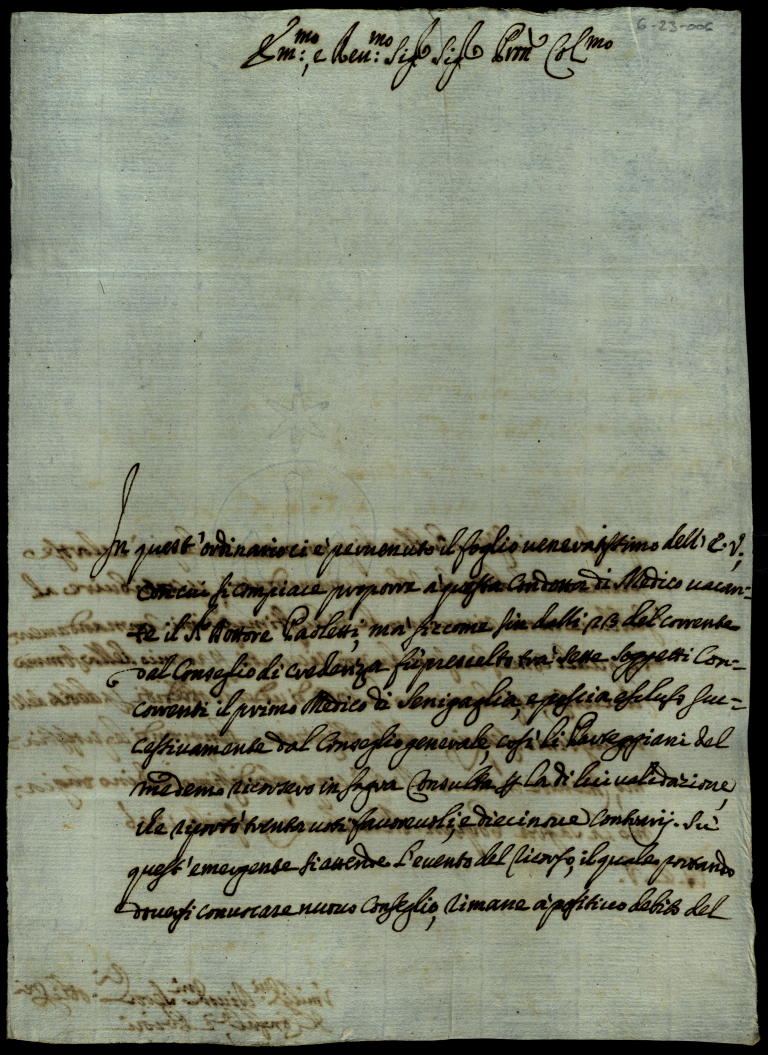 6-23-006
Em:mo, e Reu:mo Sig.r Sig.r Pron Colmo
In quest'ordinario ci è peruenuto il foglio ueneratissimo dell'E.V;
con cui si compiace proporre à questa Condotta di Medico uacan-
te il Sr Dottore Paoletti, mà siccome sin dalli 23 del corrente
dal Conseglio di credenza fù prescelto trà sette soggetti Con-
correnti il primo Medico di Senigaglia, e poscia escluso suc-
cessiuamente dal Conseglio generale, così li Parteggiani del
medemo ricorsero in sagra Consulta p la di lui validazione,
che riportò trenta uoti fauoreuoli, e diecinoue Contrarij. Sù
quest'emergente si attende l'euento del ricorso, il quale portando
douersi conuocare nuouo Conseglio, rimane à positiuo debito del